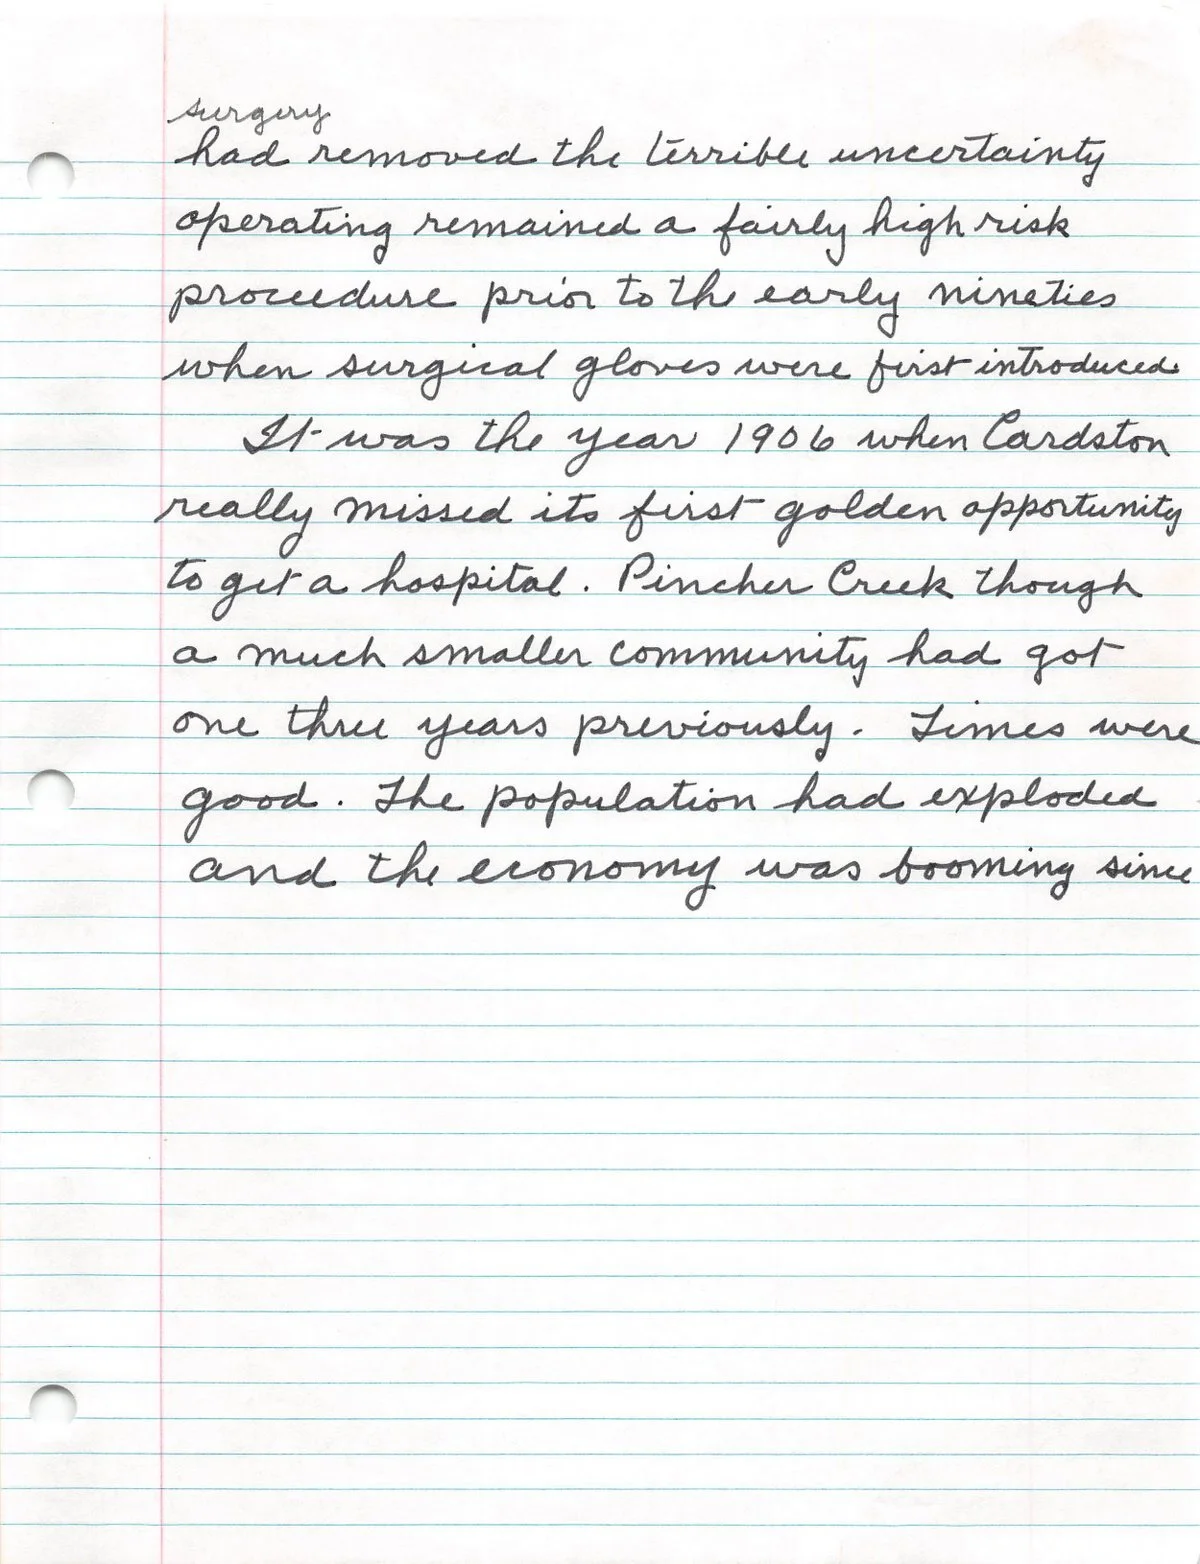 surgery
had removed the terrible uncertainty
operating remained a fairly high risk
procedure prior to the early nineties
when surgical gloves were first introduced.
It was the year 1906 when Cardston
really missed its first golden opportunity
to get a hospital. Pincher Creek though
a much smaller community had got
one three years previously. Times were
good. The population had exploded
and the economy was booming since